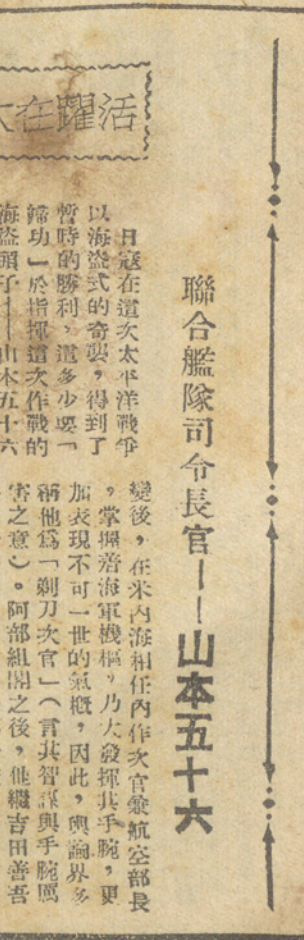 活躍在
聯合艦隊司令長官——山本五十六
日寇在這次太平洋戰爭
以海盜式的奇襲，得到了
暫時的勝利，這多少要「
歸功」於指揮這次作戰的
海盜頭子——山本五十六
變後，在米內海相任內作次官兼航空部長
，掌握着海軍機樞，乃大發揮其手腕，更
加表現不可一世的氣概，因此，輿論界多
稱他爲「剃刀次官」（言其智謀與手腕厲
害之意）。阿部組閣之後，他繼吉田善吾